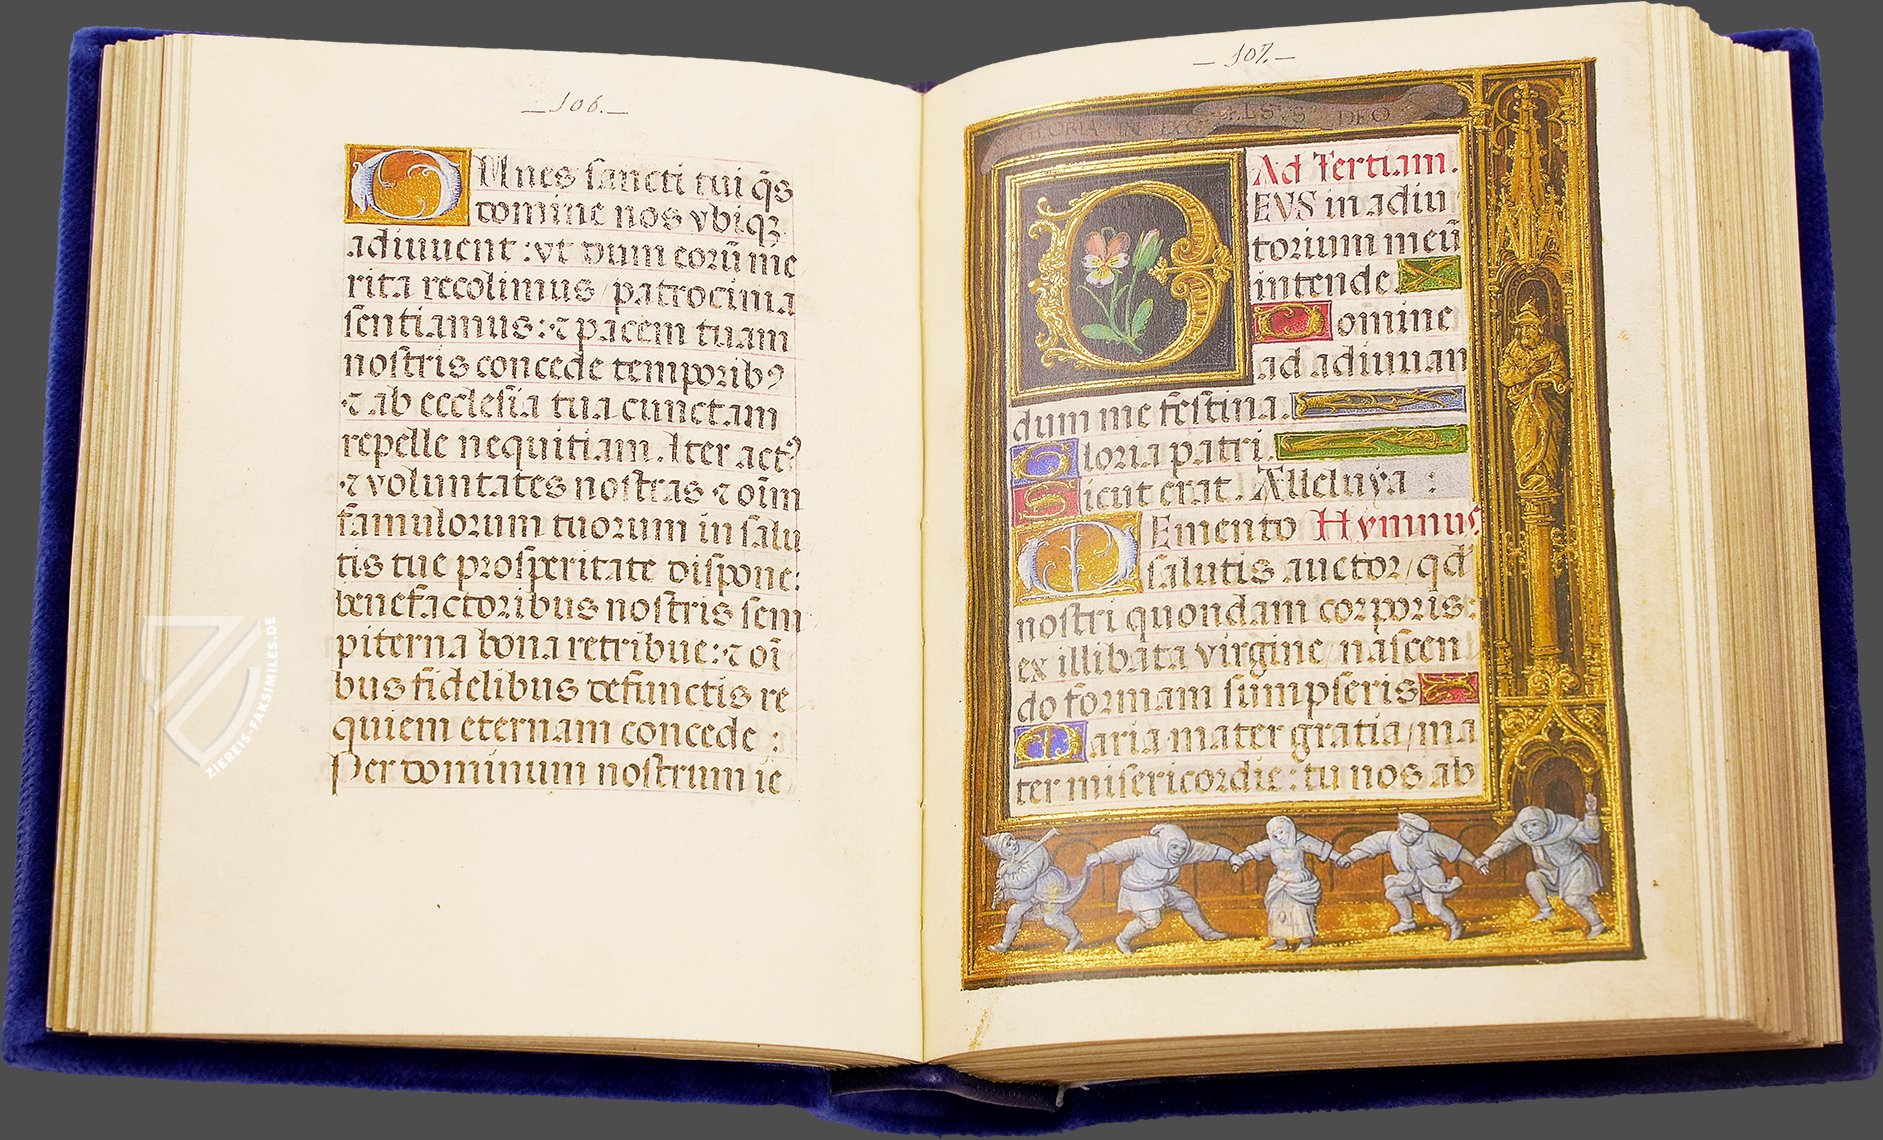 _106._
OMnes sancti tui q̃s
domine nos vbiqꝫ
adiuuent : vt dum eorũ me
rita recolimus / patrocinia
sentiamus : ⁊ pacem tuam
nostris concede temporibꝰ
⁊ ab ecclesia tua cunctam
repelle nequitiam . Iter actꝰ
⁊ voluntates nostras ⁊ oĩm
famulorum tuorum in salu
tis tue prosperitate dispone :
benefactoribus nostris sem
piterna bona retribue : ⁊ oĩ
bus fidelibus defunctis re
quiem eternam concede :
Per dominum nostrum ie
_107._
GLORIA IN EXCELSVS DEO
Ad Tertiam.
DEVS in adiu
torium meũ
intende.
Domine
ad adiuuan
dum me festina.
Gloria patri.
Sicut erat. Alleluya :
MEmento Hymnus
salutis auctor / qđ
nostri quondam corporis :
ex illibata virgine / nascen
do formam sumpseris
Maria mater gratia / ma
ter misericordie : tu nos ab
ZIEREIS-FAKSIMILES.DE